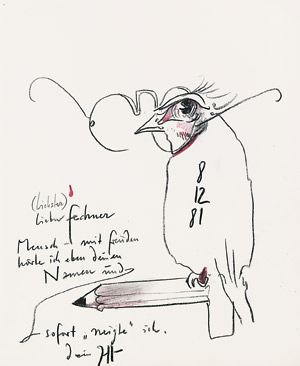 8
12
81
(Liebster)
lieber Fechner
Mensch - mit Freuden
höre ich eben deinen
Namen und
sofort „neigte" ich.
dein